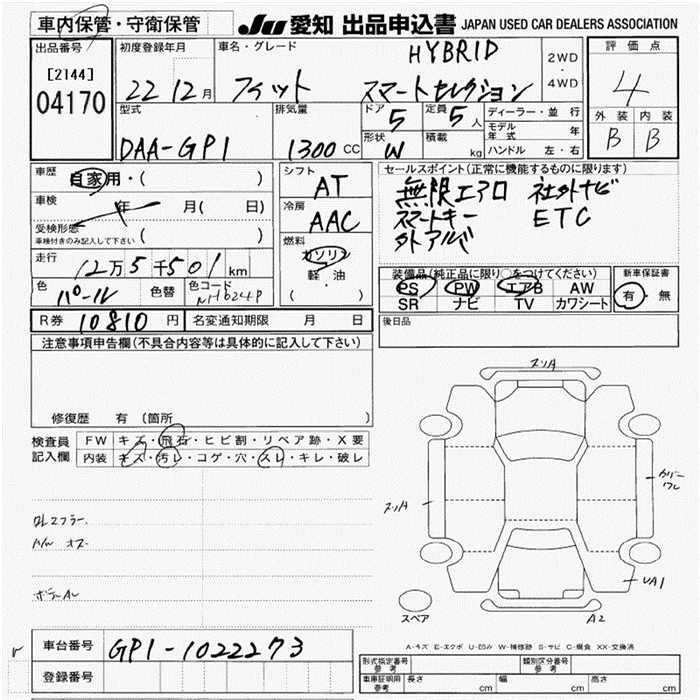 車内保管・守衛保管
JU 愛知 出品申込書 JAPAN USED CAR DEALERS ASSOCIATION
出品番号
[2144]
04170
初度登録年月
22 12月
車名・グレード
HYBRID
フィット スマートセレクション
2WD
・
4WD
評価点
4
外装 内装
B B
型式
DAA-GP1
排気量
1300 CC
ドア
5
定員
5人
形状
W
積載
kg
ディーラー・並行
モデル年式 年
ハンドル 左・右
車歴
自家用・( )
車検
年 月( 日)
受検形態
車検付きのみ記入して下さい ( )
走行
12万5千501km
色
パール
色替
色コード
NH624P
シフト
AT
冷房
AAC
燃料
ガソリン
軽・油
( )
セールスポイント(正常に機能するものに限ります)
無限エアロ 社外ナビ
スマートキー ETC
外アルバ
装備品(純正品に限り○をつけてください)
PS PW エアB AW
SR ナビ TV カワシート
新車保証書
有・無
R券 10810 円
名変通知期限 月 日
後日品
注意事項申告欄(不具合内容等は具体的に記入して下さい)
修復歴 有 (箇所 )
検査員
記入欄
FW キズ・飛石・ヒビ割・リペア跡・X要
内装 キズ・汚レ・コゲ・穴・スレ・キレ・破レ
スリA
スリA
カバー
ワレ
UA1
A2
スペア
A-キズ E-エクボ U-凹み W-補修跡 S-サビ C-腐食 XX-交換済
車台番号 GP1-1022273
登録番号
形式指定番号
参考
類別区分番号
参考
車庫証明用
参考
長さ cm 幅 cm 高さ cm